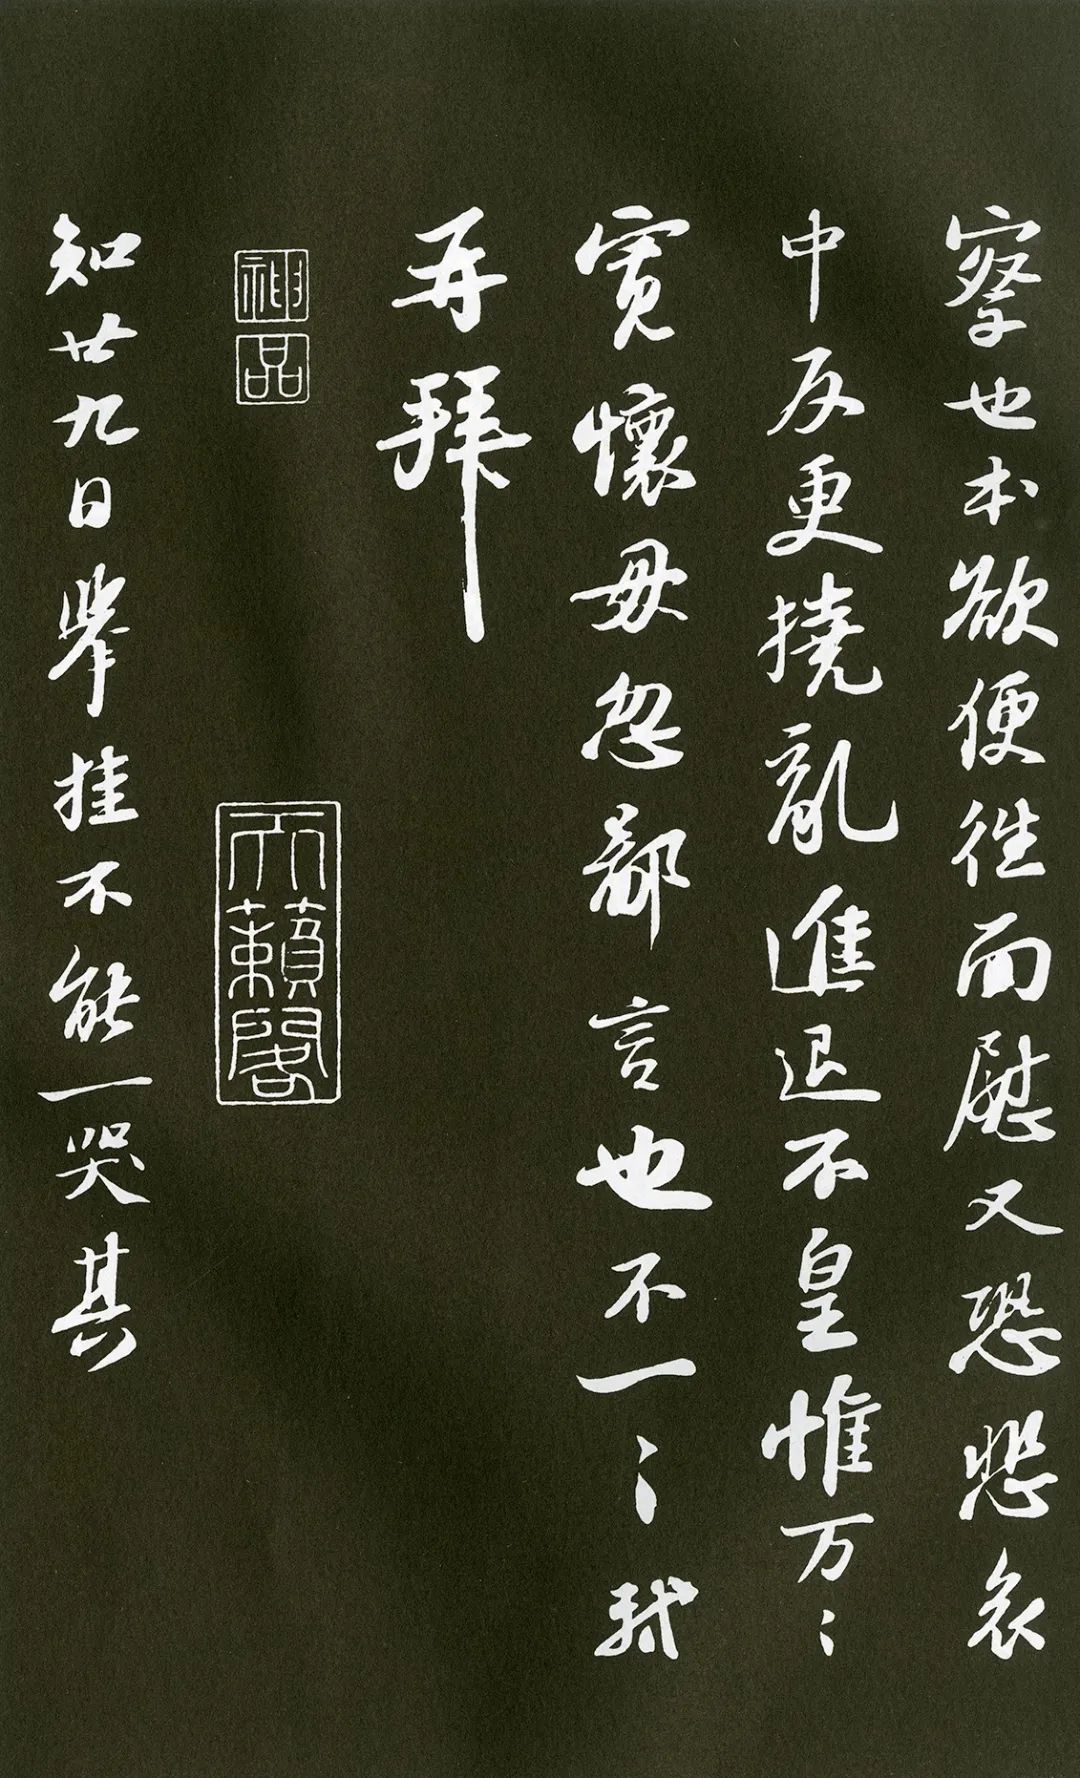 察也本欲便往面慰又恐悲哀
中反更撓亂進退不皇惟万〻
寬懷毋忽鄙言也不一〻軾
再拜
神品
天籟閣
知廿九日舉掛不能一哭其